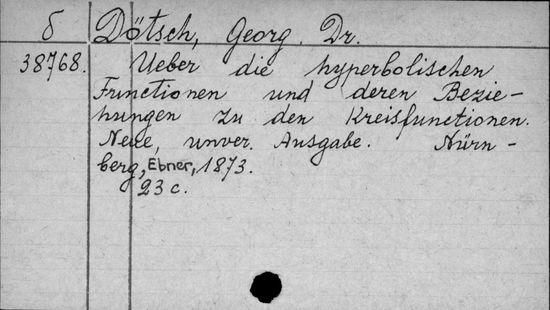 б Dötsch, Georg. Dr.
38768. Ueber die hyperbolischen
Functionen und deren Bezie-
hungen zu den Kreisfunctionen.
Neue, unver. Ausgabe. Nürn-
berg, Ebner, 1873.
23 c.